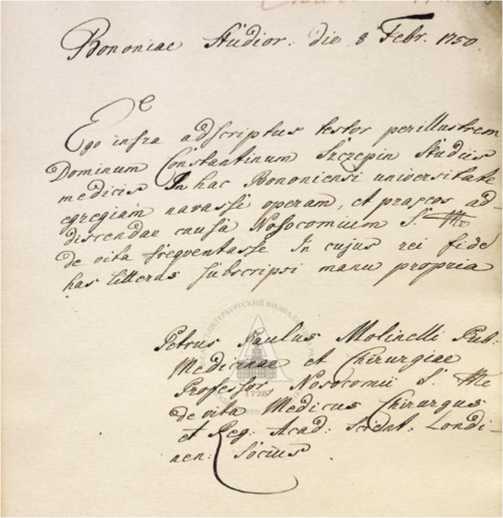 Bononiae Studior. die 8 Febr. 1750
Ego infra adscriptus testor perillustrem
Dominum Constantinum Szczepin Studiis
medicis In hac Bononiensi universitate
egregiam navasse operam, et praxeos ad-
discendae causa Nosocomium S. Mae
de vita freqventasse In cujus rei fidem
has litteras subscripsi manu propria
Petrus Paulus Molinelli Pub:
Medicinae et Chirurgiae
Professor Nosocomii S. Mae
de vita Medicus Chirurgus
et Reg: Acad: Scient: Londi-
nen: Socius